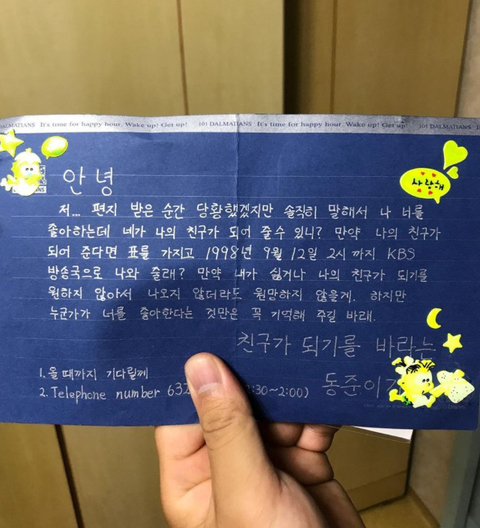 DALMATIANS It's time for happy hour. Wake up! Get up! 101 DALMATIANS It's time for happy hour. Wake up! Get up! 101 DALMATIANS
안녕
사랑해
저... 편지 받은 순간 당황했겠지만 솔직히 말해서 나 너를
좋아하는데 네가 나의 친구가 되어 줄수 있니? 만약 나의 친구가
되어 준다면 표를 가지고 1998년 9월 12일 2시 까지 KBS
방송국으로 나와 줄래? 만약 내가 싫거나 나의 친구가 되기를
원하지 않아서 나오지 않더라도 원망하지 않을게. 하지만
누군가가 너를 좋아한다는 것만은 꼭 기억해 주길 바래.
친구가 되기를 바라는
1. 올 때까지 기다릴께
동준이가
2. Telephone number 632 :30~2:00)